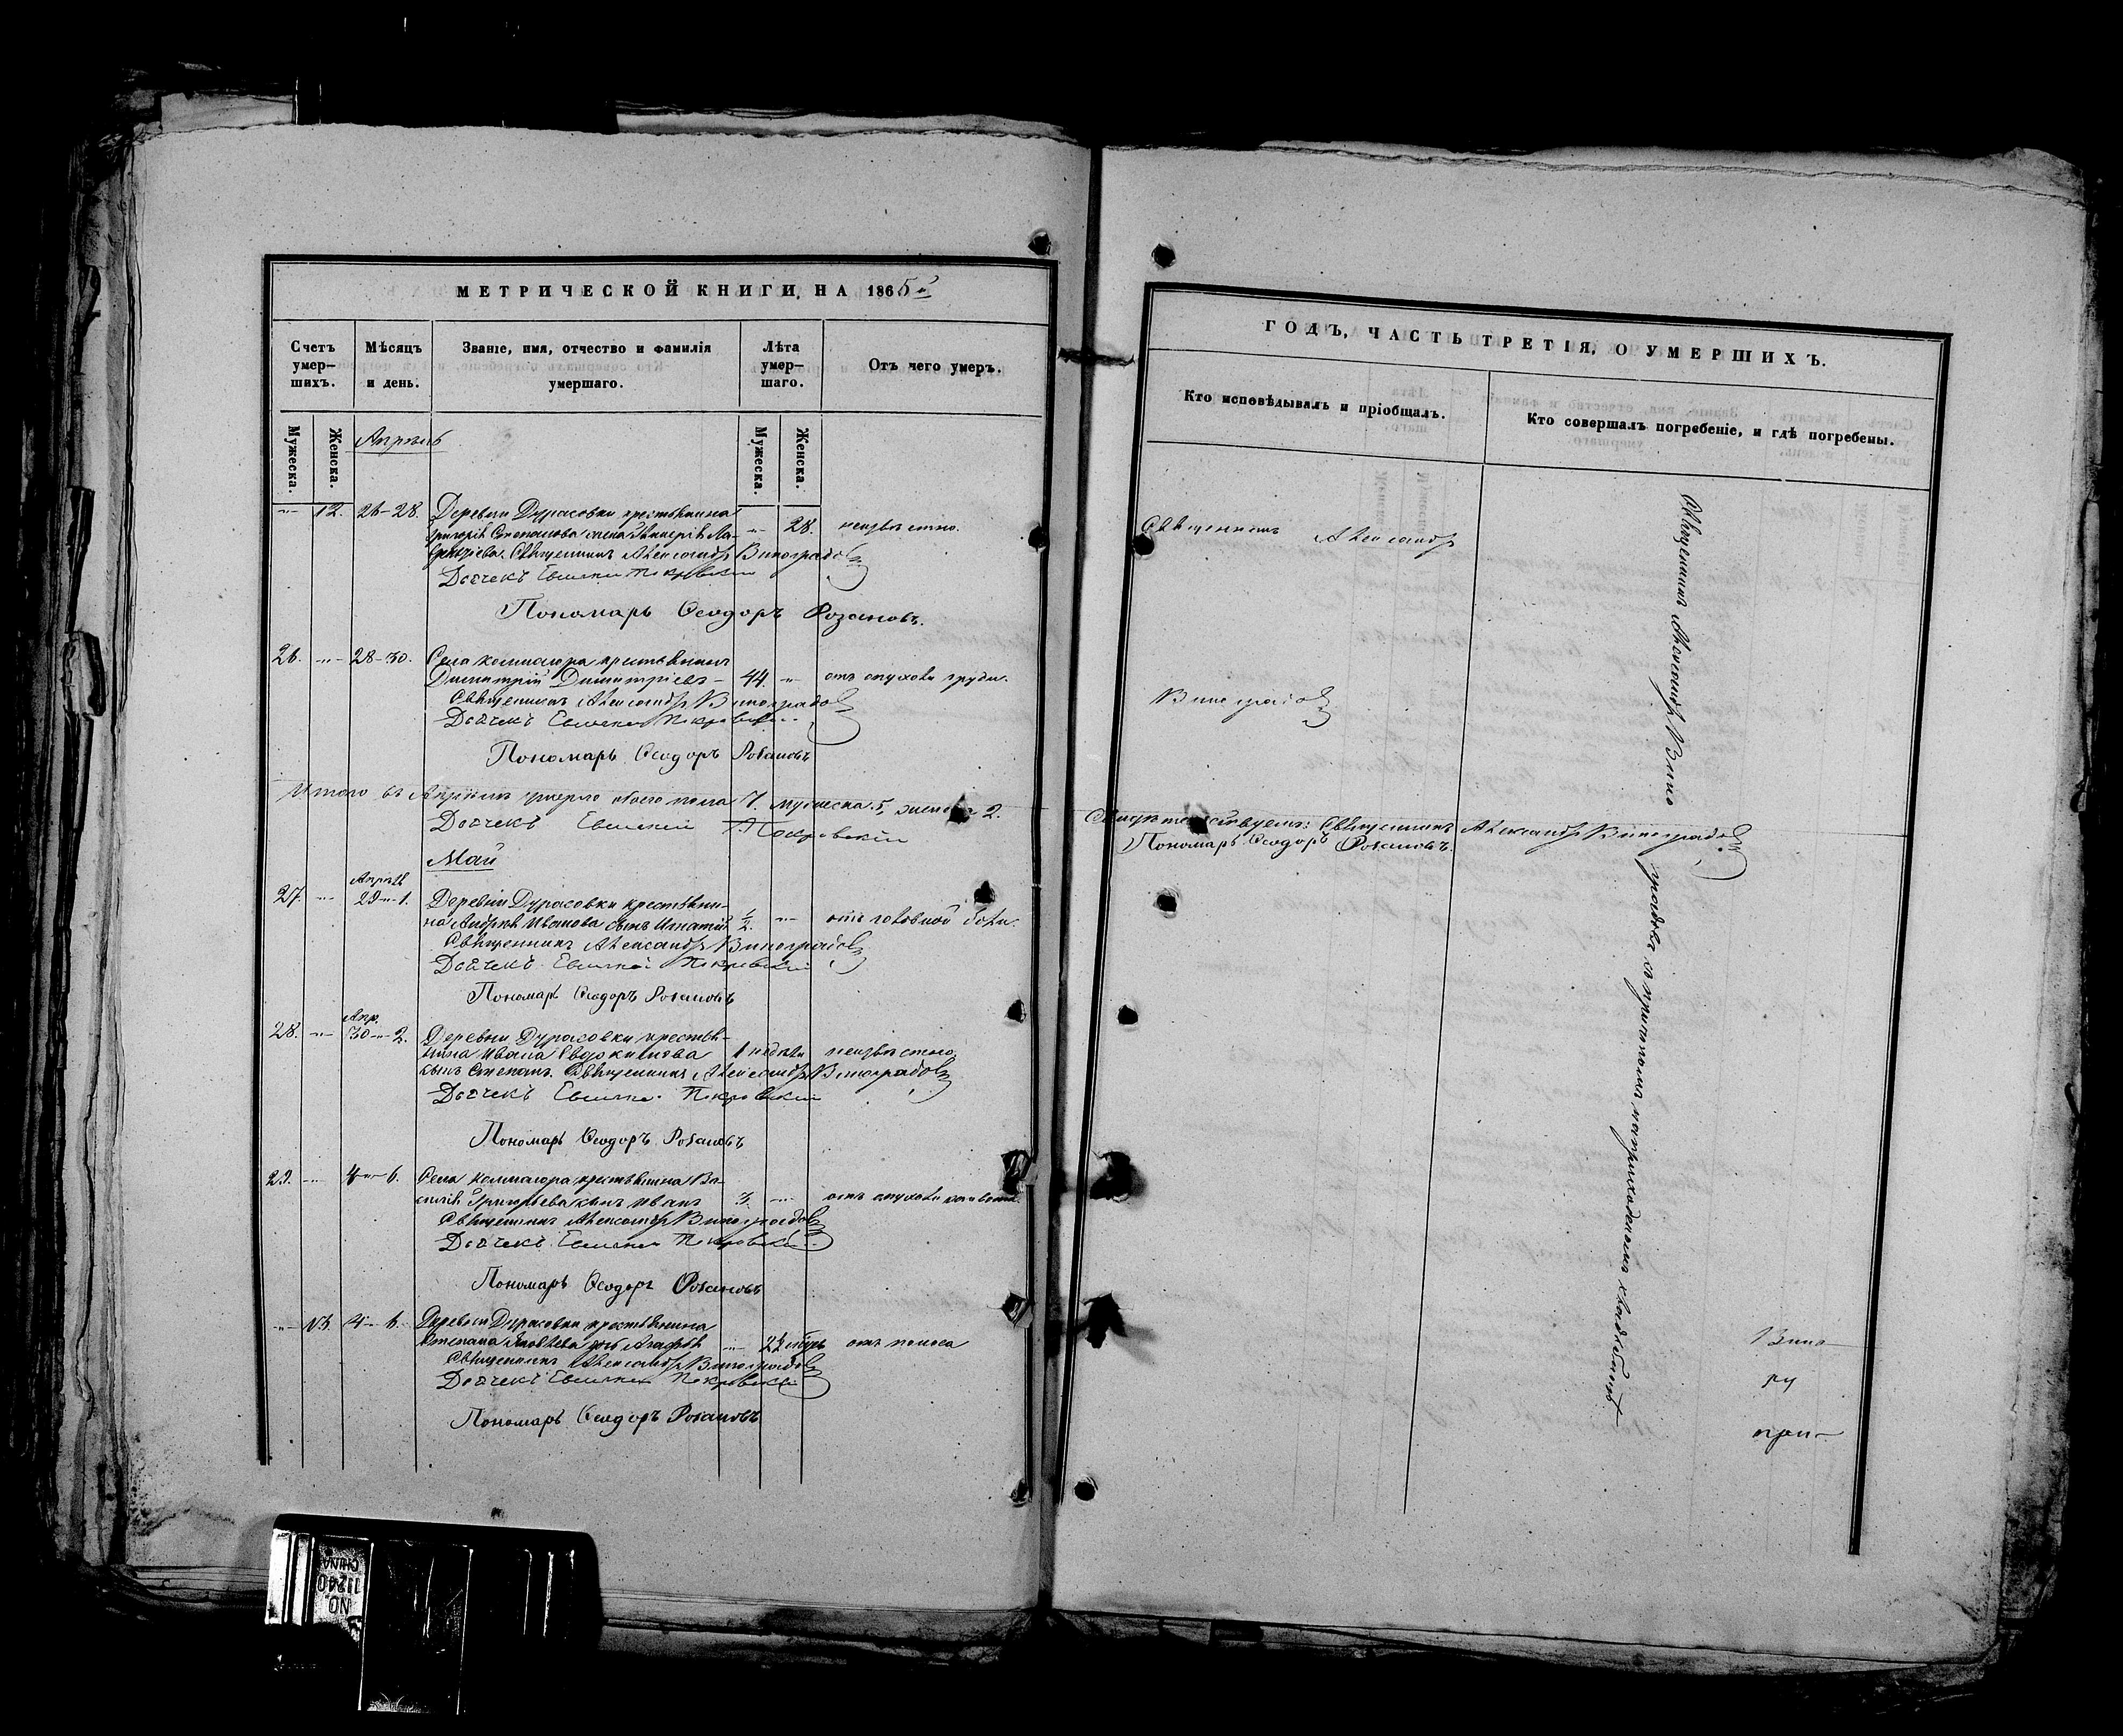 МЕТРИЧЕСКОЙ КНИГИ, НА 1865й
Счетъ умер—шихъ.
Мѣсяцъ и день.
Званіе, имя, отчество и фамилія умершаго.
Лѣта умер—шаго.
Отъ чего умеръ.
Мужеска. Женска. Апрѣль Мужеска. Женска.
12. 26-28. Деревни Дурасовки крестьянина
Григорія Степанова жена 28. неизвѣстно.
Священникъ Александръ Виноградовъ
Дьячекъ Евлампій Покровскій
Пономарь Ѳеодоръ Розановъ.
26. 28-30. Села крестьянинъ
Димитрій Димитріевъ 44. отъ опухоли груди.
Священникъ Александръ Виноградовъ
Дьячекъ Евлампій Покровскій
Пономарь Ѳеодоръ Розановъ
Итого въ Апрѣлѣ умерло обоего пола 7. мужеска 5, женска 2.
Дьячекъ Евлампій Покровскій
Май
Апрѣль
27. 29-1. Деревни Дурасовки крестьяни-
на Андрея Иванова сынъ Игнатій 1/2 отъ головной боли.
Священникъ Александръ Виноградовъ
Дьячекъ Евлампій Покровскій
Пономарь Ѳеодоръ Розановъ
Апр.
28. 30-2. Деревни Дурасовки крестья-
нина Ивана Евдокимова 1 недѣли неизвѣстно
сынъ Степанъ. Священникъ Александръ Виноградовъ
Дьячекъ Евлампій Покровскій
Пономарь Ѳеодоръ Розановъ
29. 4-6. Села крестьянина Ва-
силія Григорьева сынъ Иванъ 3. отъ опухоли
Священникъ Александръ Виноградовъ
Дьячекъ Евлампій Покровскій
Пономарь Ѳеодоръ Розановъ
13. 4-6. Деревни Дурасовки крестьянина
Степана Яковлева дочь Агафія отъ поноса
Священникъ Александръ Виноградовъ
Дьячекъ Евлампій Покровскій
Пономарь Ѳеодоръ Розановъ
ГОДЪ, ЧАСТЬ ТРЕТІЯ, О УМЕРШИХЪ.
Кто исповѣдывалъ и пріобщалъ.
Кто совершалъ погребеніе, и гдѣ погребены.
Священникъ Александръ
Виноградовъ
Свидѣтельствуемъ: Священникъ Александръ Виноградовъ
Пономарь Ѳеодоръ Розановъ.
Священникъ Александръ Вино
градовъ съ причтомъ на приходскомъ кладбищѣ
Вино
при
NO. 11240
CHINA